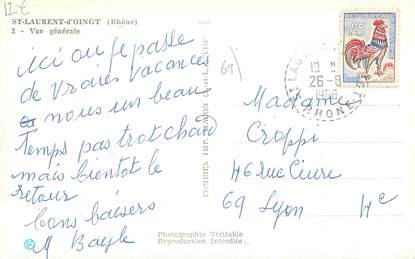 12€
ST-LAURENT-d'OINGT (Rhône)
2 - Vue générale
ici ou je passe
de vraies vacances
nous un beau
Temps pas trop chaud
mais bientôt le
retour
bons baisers
M Bayle
69
COMBIER IMP. MACON
Photographie Véritable
Reproduction Interdite
25
26-9
RHONE
Madame
Croppi
46 rue Cuire
69 Lyon 4e